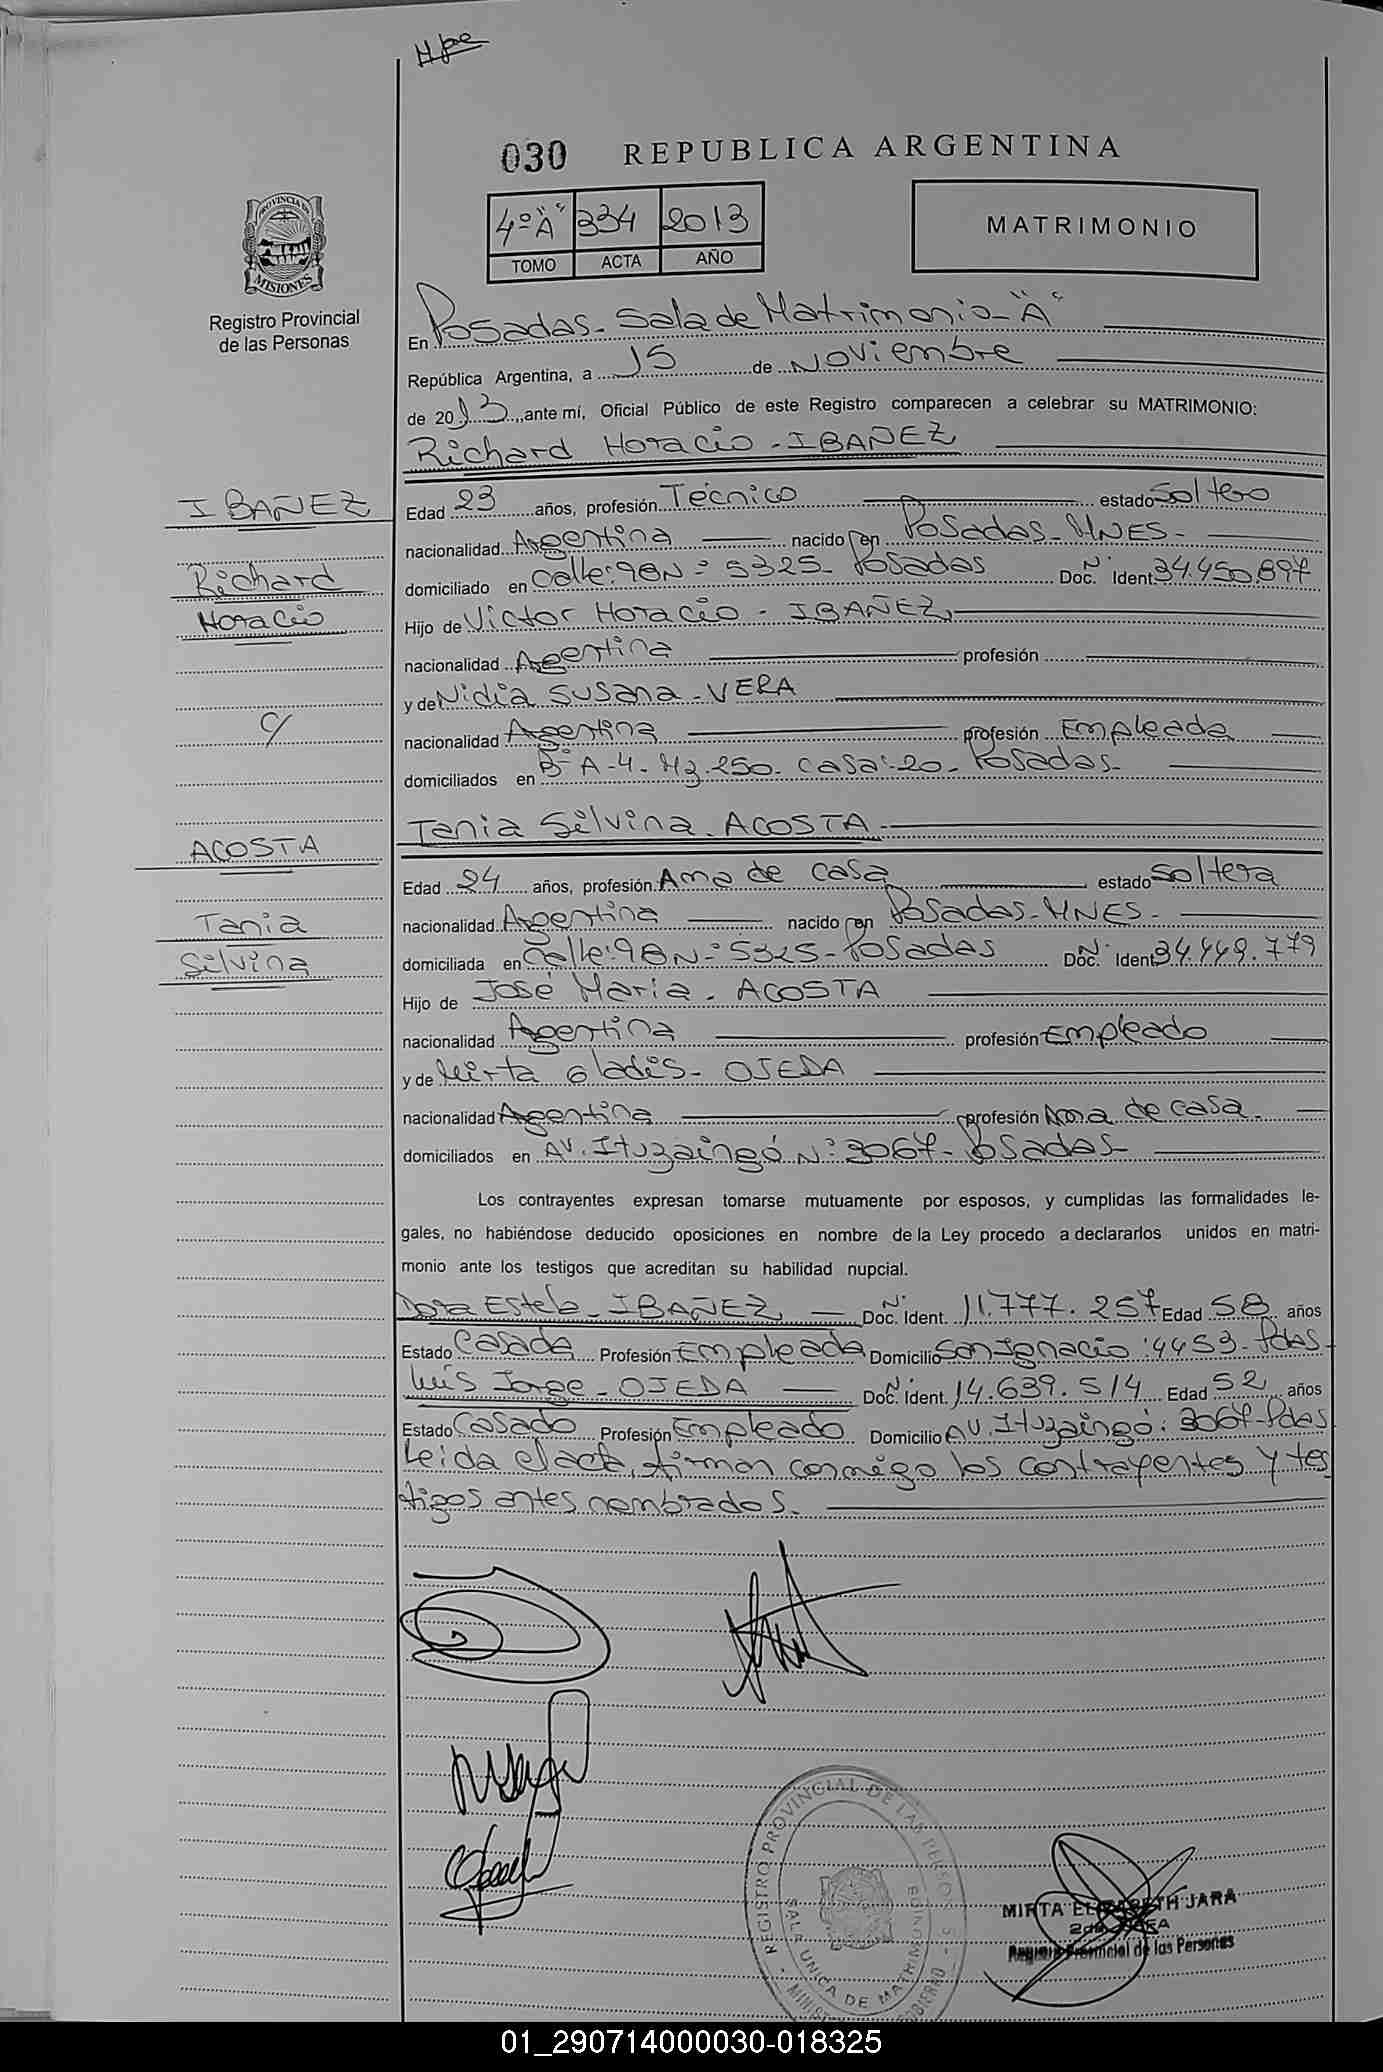 030 REPUBLICA ARGENTINA
4º "A" 334 2013
TOMO ACTA AÑO
MATRIMONIO
PROVINCIA DE
MISIONES
Registro Provincial
de las Personas
En Posadas - Sala de Matrimonio - "A"
República Argentina, a 15 de Noviembre
de 2013, ante mí, Oficial Público de este Registro comparecen a celebrar su MATRIMONIO:
Richard Horacio - IBAÑEZ
IBAÑEZ
Richard
Horacio
c/
ACOSTA
Tania
Silvina
Edad 23 años, profesión Técnico estado Soltero
nacionalidad Argentina nacido en Posadas - MNES -
domiciliado en Calle: 98 Nº 5325 - Posadas Nº Doc. Ident. 34.450.897
Hijo de Victor Horacio - IBAÑEZ
nacionalidad Argentina profesión
y de Nidia Susana - VERA
nacionalidad Argentina profesión Empleada
domiciliados en Bº A-4- Mz. 250 - Casa: 20 - Posadas -
Tania Silvina - ACOSTA
Edad 24 años, profesión Ama de casa estado Soltera
nacionalidad Argentina nacido en Posadas - MNES -
domiciliada en Calle: 98 Nº 5325 - Posadas Nº Doc. Ident. 34.449.779
Hijo de José Maria - ACOSTA
nacionalidad Argentina profesión Empleado
y de Mirta Gladis - OJEDA
nacionalidad Argentina profesión Ama de casa.
domiciliados en AV. Ituzaingó Nº: 3067 - Posadas -
Los contrayentes expresan tomarse mutuamente por esposos, y cumplidas las formalidades le-
gales, no habiéndose deducido oposiciones en nombre de la Ley procedo a declararlos unidos en matri-
monio ante los testigos que acreditan su habilidad nupcial.
Dora Estela - IBAÑEZ Nº Doc. Ident. 11.777.257 Edad 58 años
Estado Casada Profesión Empleada Domicilio San Ignacio: 4453 - Pdas -
Luis Jorge - OJEDA Nº Doc. Ident. 14.639.514 Edad 52 años
Estado Casado Profesión Empleado Domicilio AV. Ituzaingó: 3067 - Pdas
Leida el acta, firman conmigo los contrayentes y tes
tigos antes nombrados.
REGISTRO PROVINCIAL DE LAS PERSONAS
SALA UNICA DE MATRIMONIO
MIRTA ELIZABETH JARA
2da. JEFA
Registro Provincial de las Personas
01_290714000030-018325